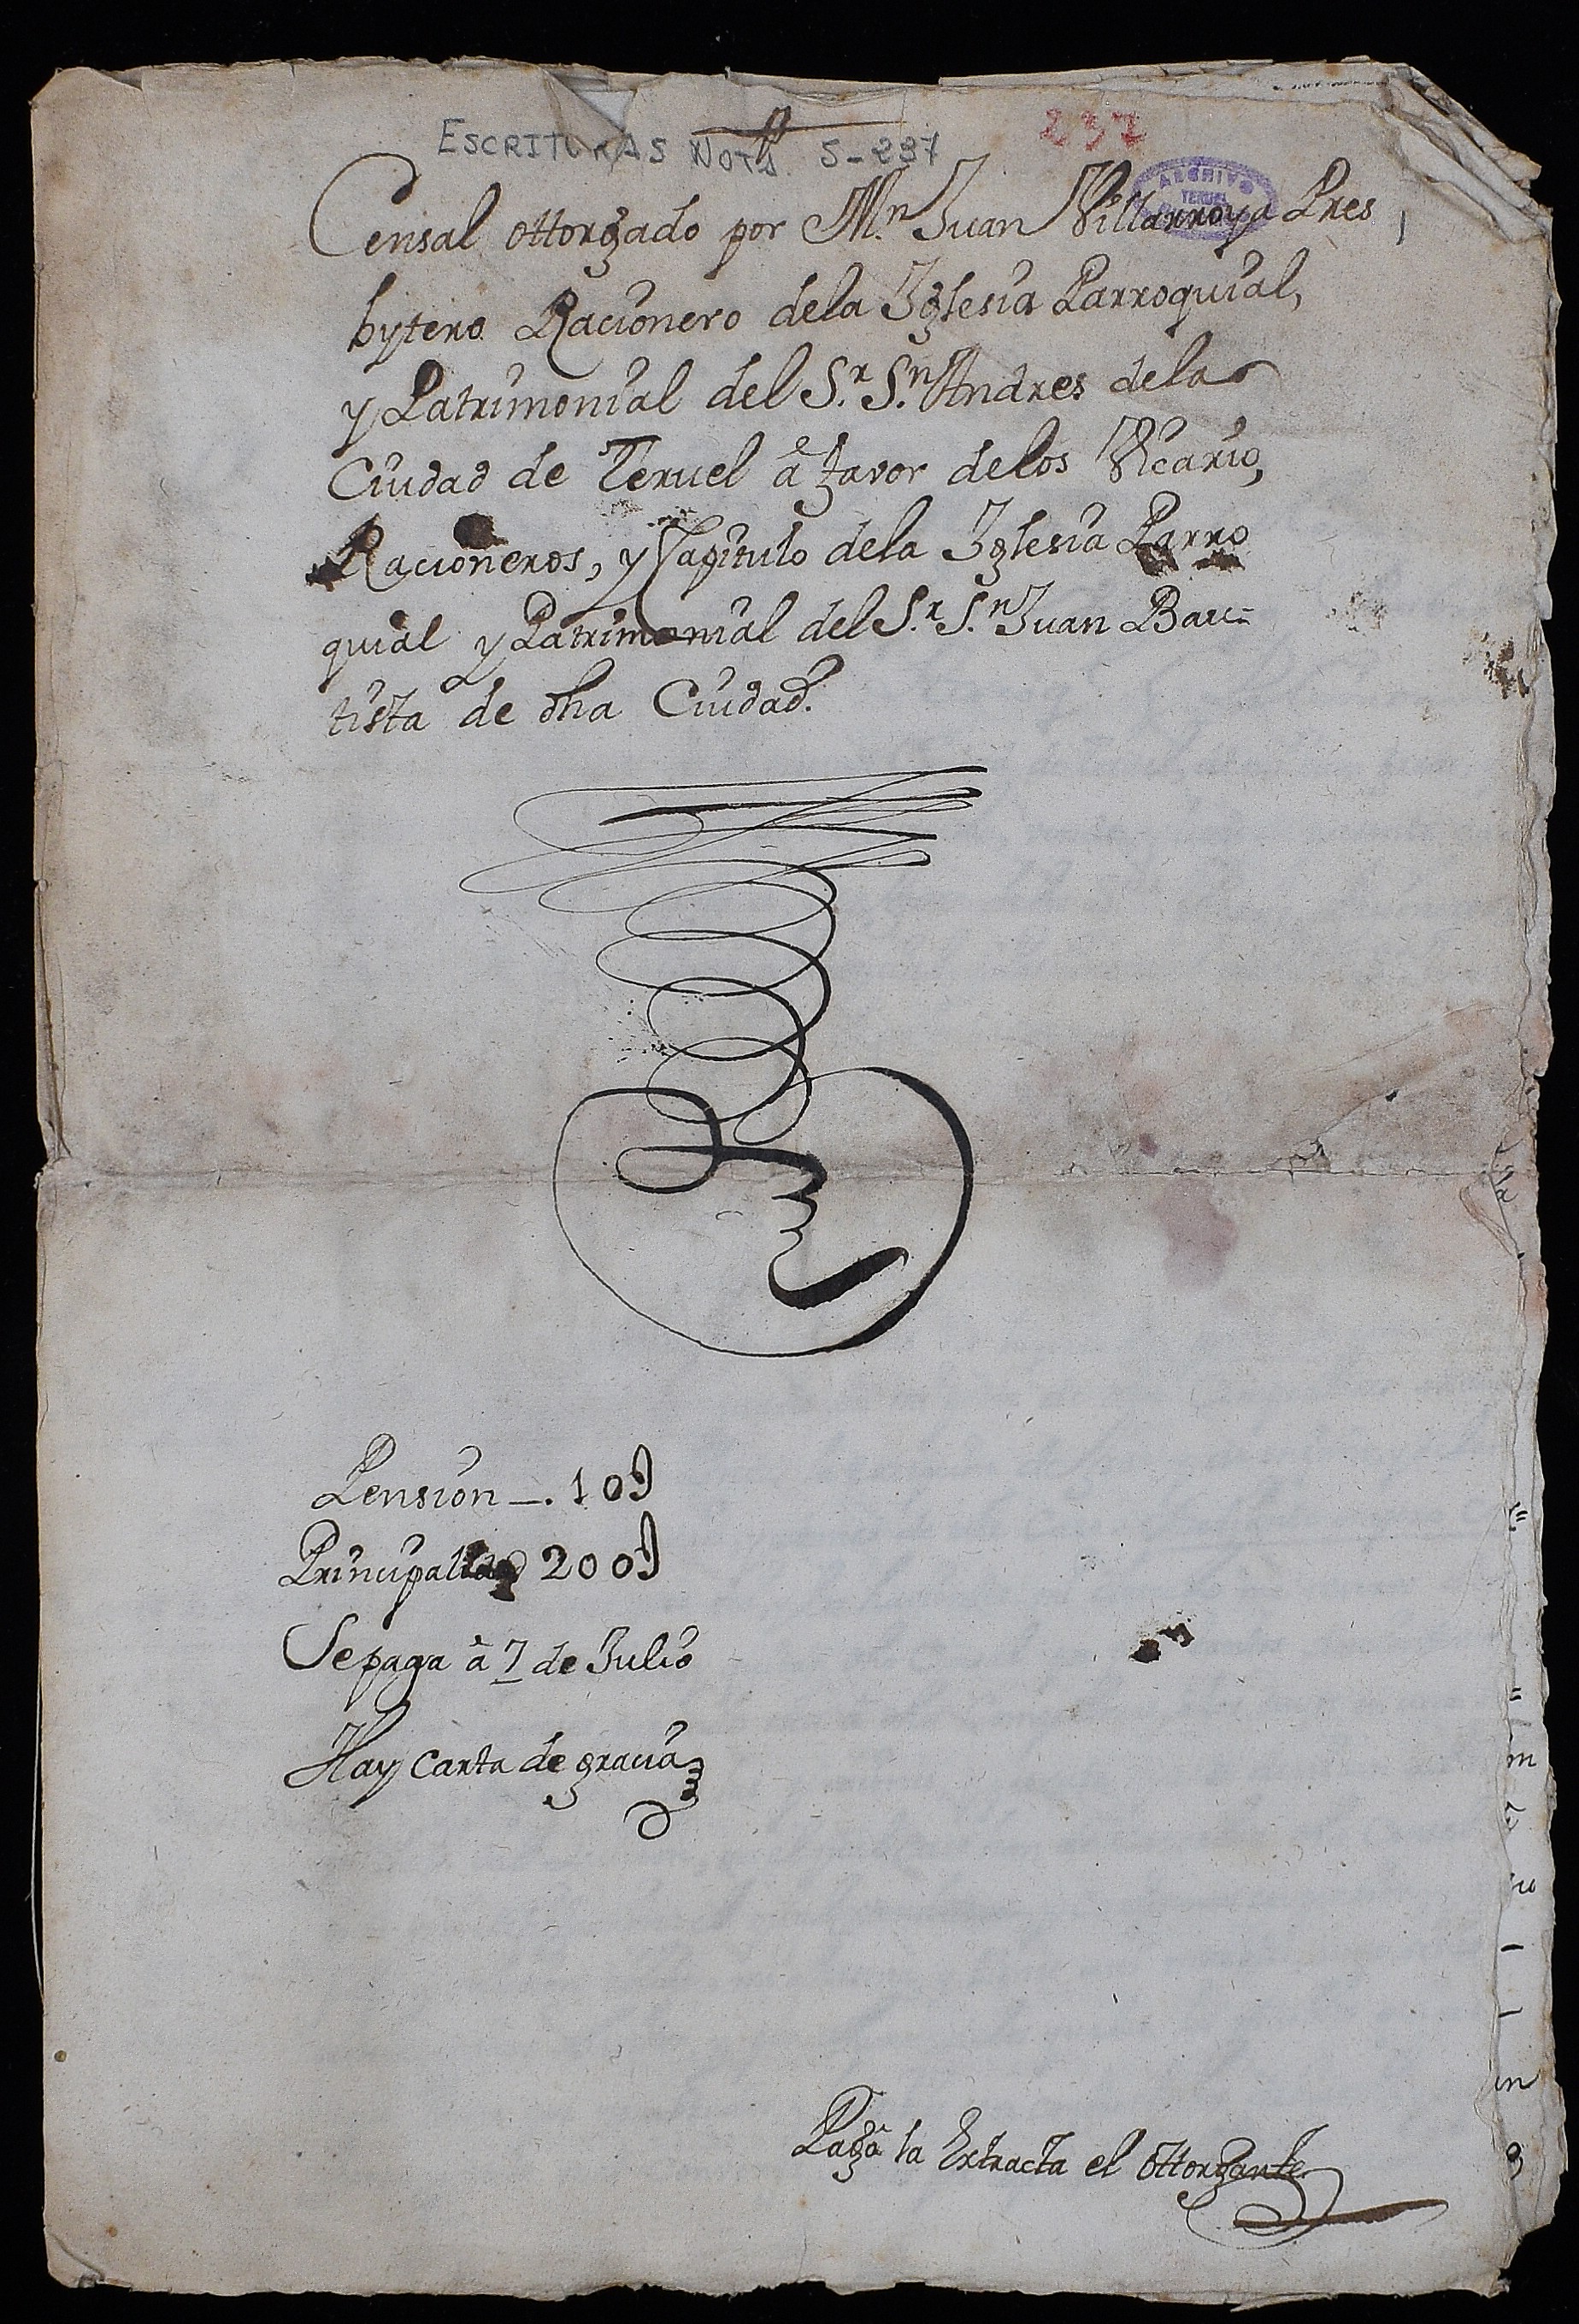 ESCRITURAS NOTS. 5-237
237
ARCHIVO
TERUEL
Censal ottorgado por Mn. Juan Villarroya Pres
bytero Racionero dela Iglesia Parroquial,
y Patrimonial del Sr. Sn. Andres dela
Ciudad de Teruel â favor delos Vicario,
Racioneros, y Capitulo dela Iglesia Parro
quial y Patrimonial del Sr. Sn. Juan Bau=
tista de dha Ciudad.
Pension _. 10 L
Principalidad 200 L
Se paga â 7 de Julio
Hay carta de gracia
Pagâ la Extracta el ottorgante